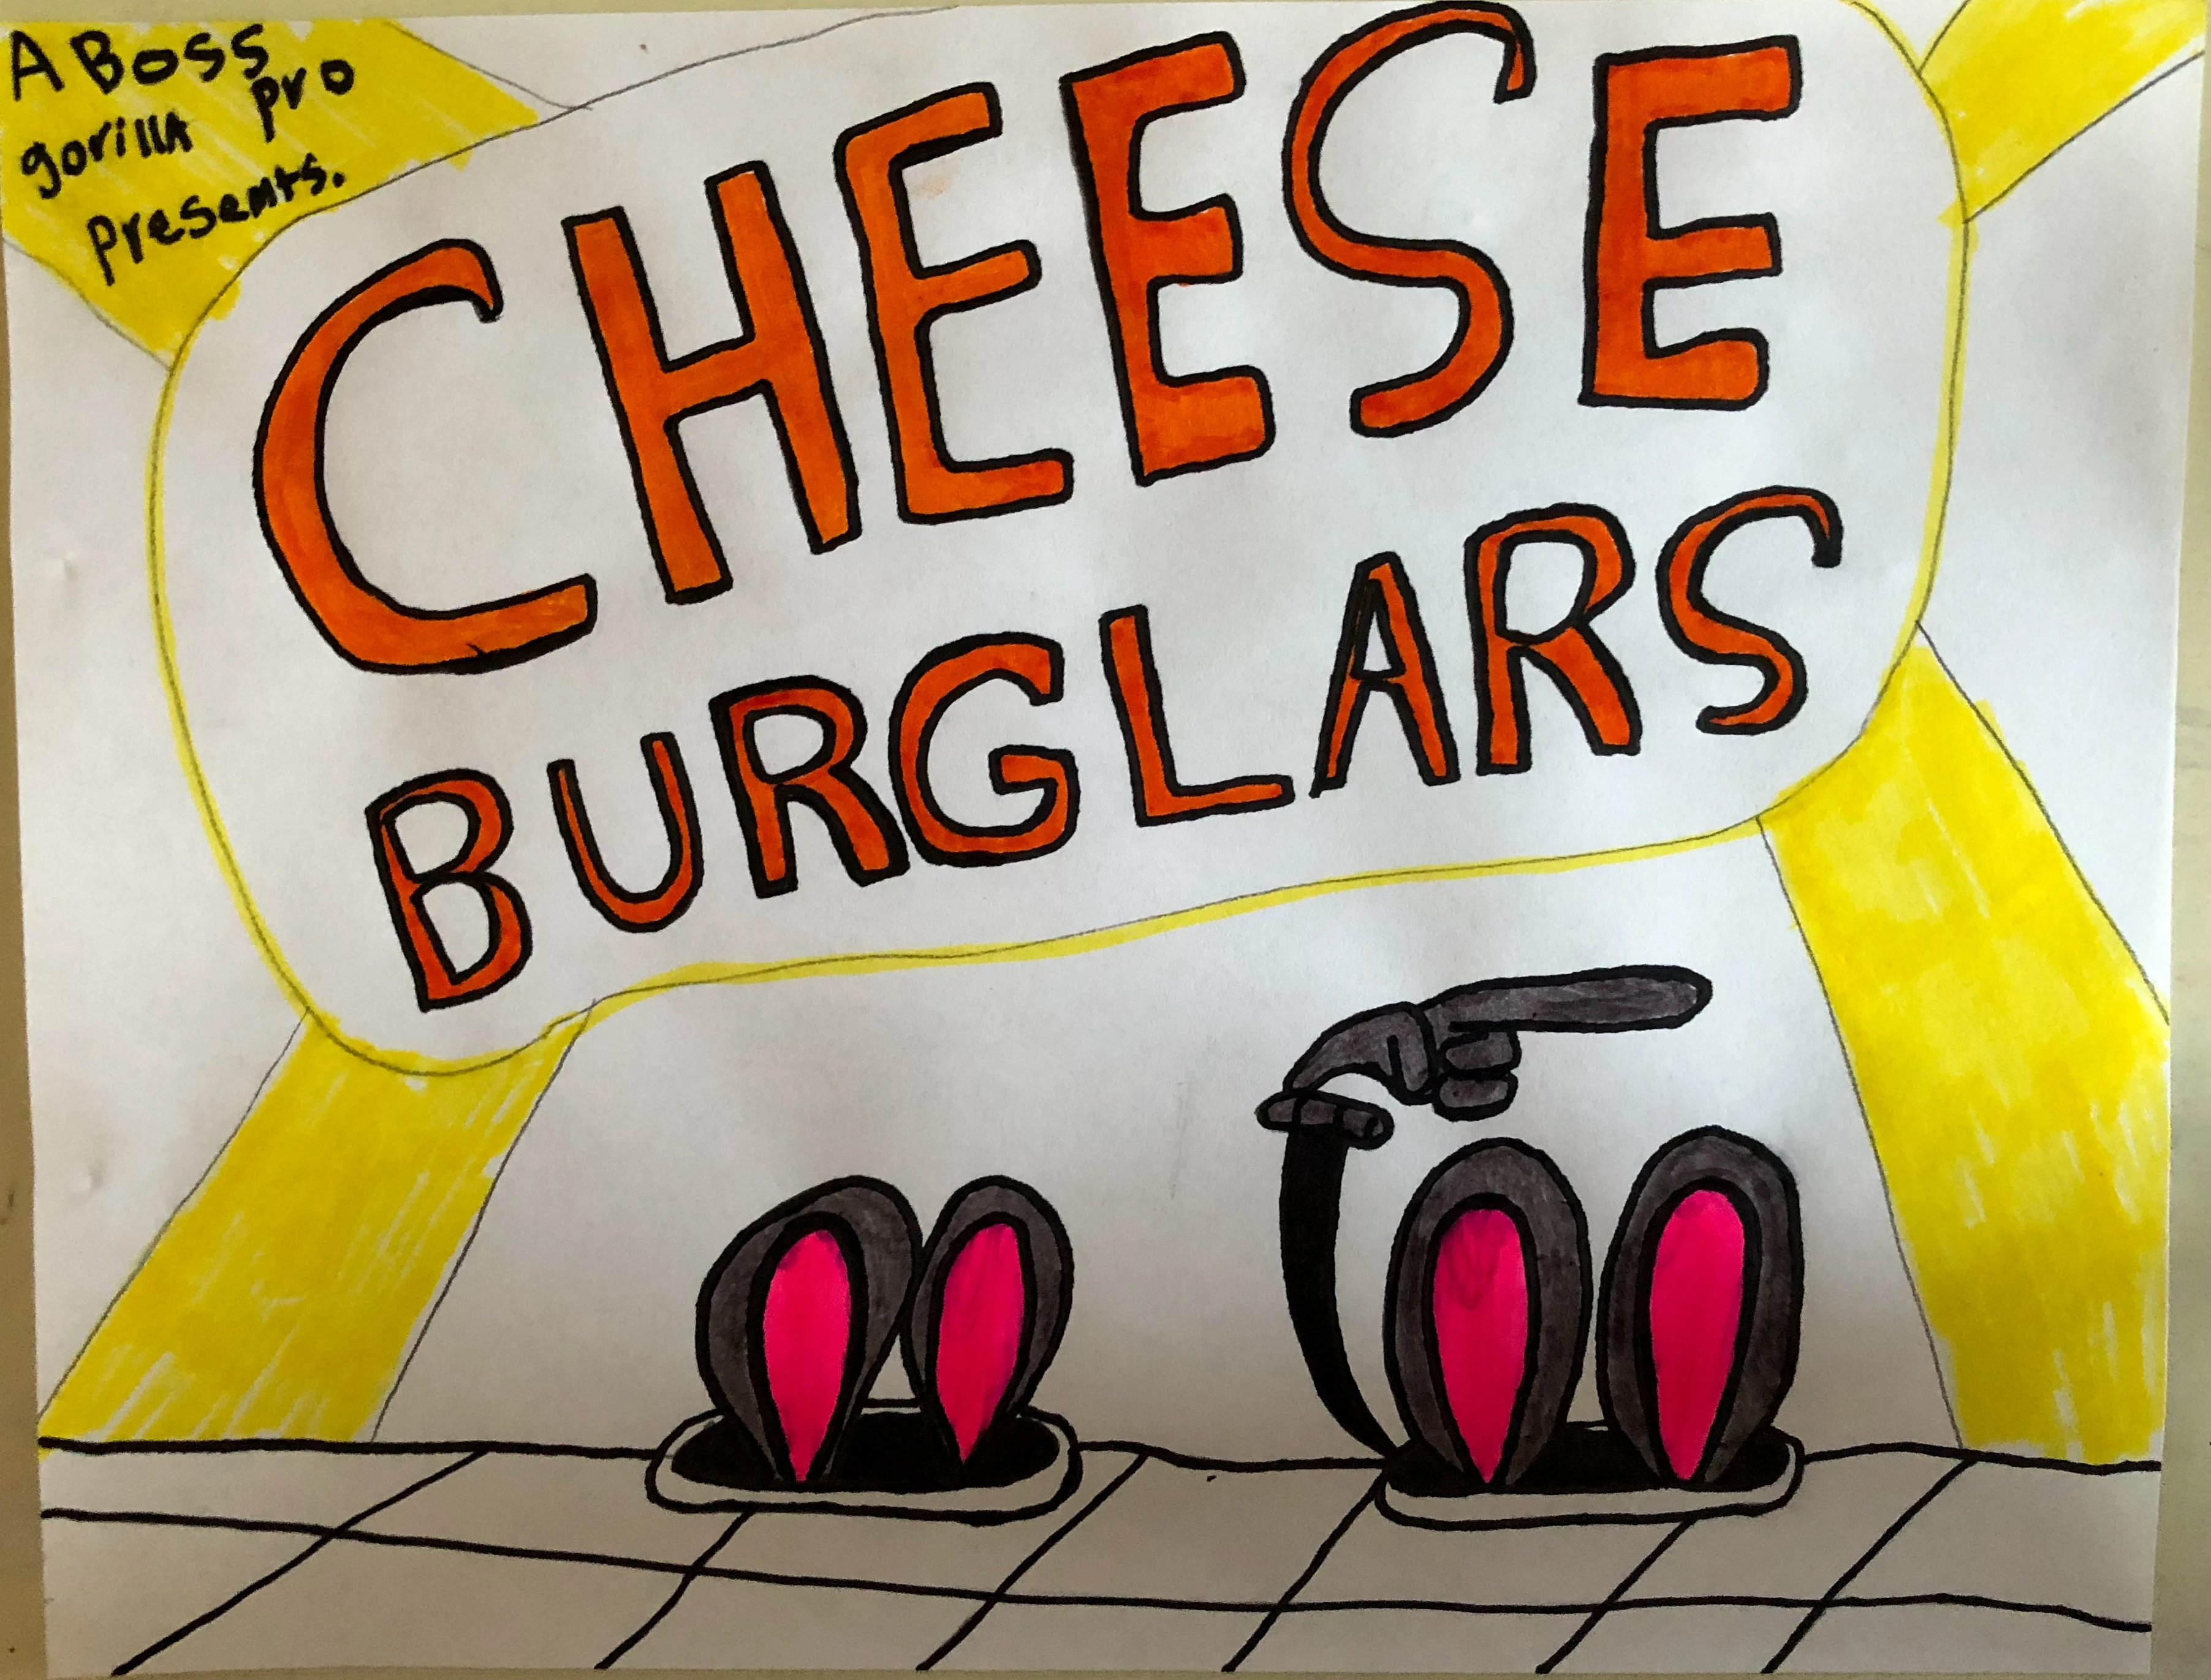 A Boss
gorilla pro
presents.
CHEESE
BURGLARS